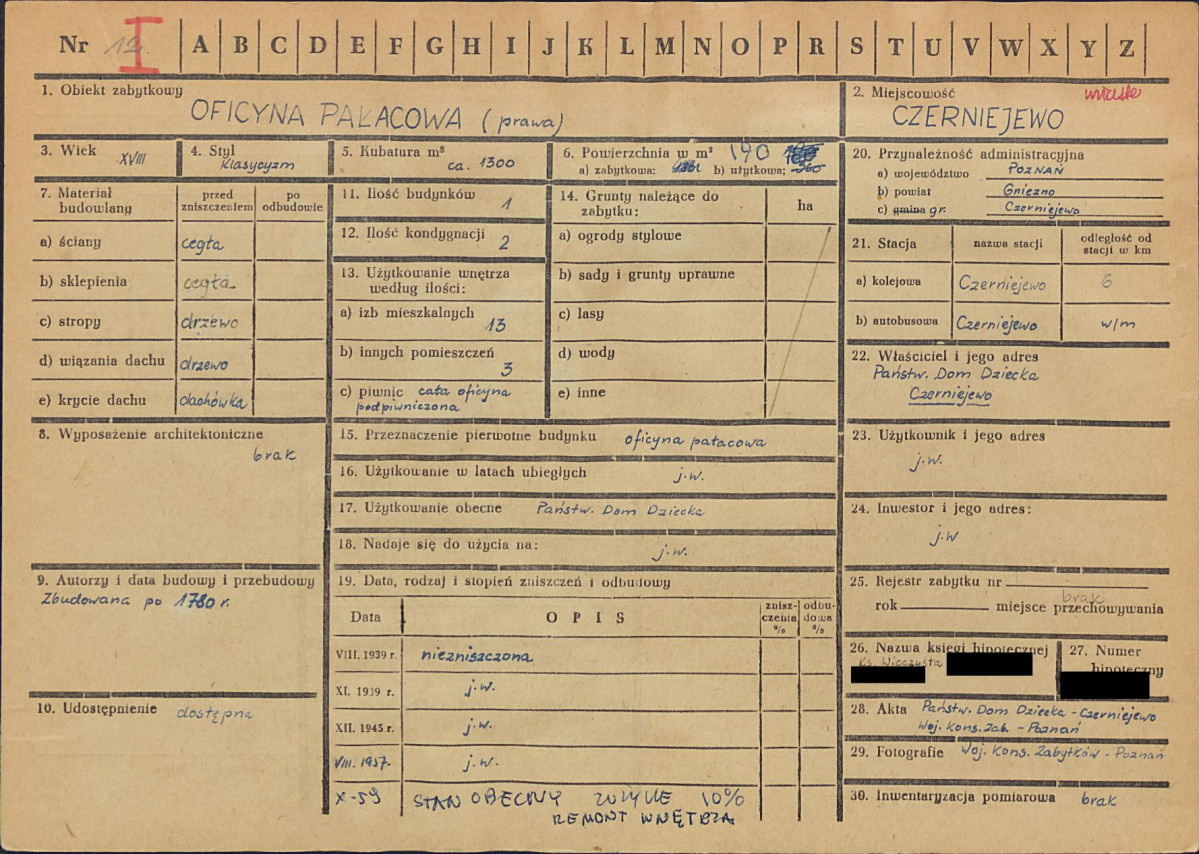 Nr 12. I A B C D E F G H I J K L M N O P R S T U V W X Y Z
1. Obiekt zabytkowy
OFICYNA PAŁACOWA (prawa)
2. Miejscowość miasto
CZERNIEJEWO
3. Wiek XVIII
4. Styl Klasycyzm
5. Kubatura m³
ca. 1300
6. Powierzchnia w m² 190
a) zabytkowa: b) użytkowa: 360
7. Materiał budowlany
przed zniszczeniem
po odbudowie
a) ściany cegła
b) sklepienia cegła
c) stropy drzewo
d) wiązania dachu drzewo
e) krycie dachu dachówka
8. Wyposażenie architektoniczne
brak
9. Autorzy i data budowy i przebudowy
Zbudowana po 1780 r.
10. Udostępnienie dostępna
11. Ilość budynków 1
12. Ilość kondygnacji 2
13. Użytkowanie wnętrza
według ilości:
a) izb mieszkalnych 13
b) innych pomieszczeń
3
c) piwnic cała oficyna
podpiwniczona
14. Grunty należące do
zabytku:
ha
a) ogrody stylowe
b) sady i grunty uprawne
c) lasy
d) wody
e) inne
15. Przeznaczenie pierwotne budynku oficyna pałacowa
16. Użytkowanie w latach ubiegłych j.w.
17. Użytkowanie obecne Państw. Dom Dziecka
18. Nadaje się do użycia na: j.w.
19. Data, rodzaj i stopień zniszczeń i odbudowy
Data
OPIS
znisz-
czenia
%
odbu-
dowa
%
VIII. 1939 r. niezniszczona
XI. 1939 r. j.w.
XII. 1945 r. j.w.
VIII. 1957. j.w.
X-59 STAN OBECNY ZUŻYCIE 10%
REMONT WNĘTRZA
20. Przynależność administracyjna
a) województwo POZNAŃ
b) powiat Gniezno
c) gmina gr. Czerniejewo
21. Stacja
nazwa stacji
odległość od
stacji w km
a) kolejowa Czerniejewo 6
b) autobusowa Czerniejewo w/m
22. Właściciel i jego adres
Państw. Dom Dziecka
Czerniejewo
23. Użytkownik i jego adres
j.w.
24. Inwestor i jego adres:
j.w
25. Rejestr zabytku nr
brak
rok miejsce przechowywania
26. Nazwa księgi hipotecznej
Ks. Wieczysta
27. Numer
hipoteczny
28. Akta Państw. Dom Dziecka - Czerniejewo
Woj. Kons. Zab. - Poznań
29. Fotografie Woj. Kons. Zabytków - Poznań
30. Inwentaryzacja pomiarowa brak